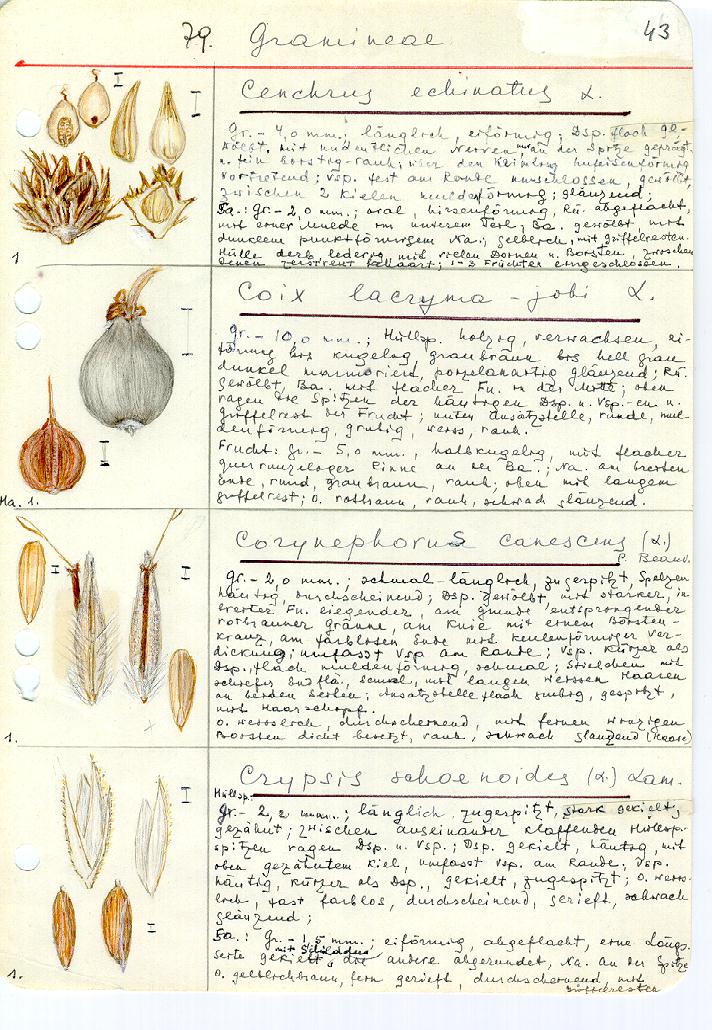 79. Gramineae
43
Cenchrus echinatus L.
Gr. - 4,0 mm.; länglich, eiförmig; Dsp. flach ge-
wölbt, mit undeutlichen Nerven, an der Spitze
u. fein borstig-rauh; über den Keimling hufeisenförmig
vortretend; Vsp. fest am Rande umschlossen, gewölbt,
zwischen 2 Kielen muldeförmig; glänzend;
Sa.: Gr. - 2,0 mm.; oval, hirsenförmig, Rü. abgeflacht,
mit einer Mulde im unteren Teil; Ba. gewölbt mit
dunklem punktförmigem Na.; gelblich, mit Griffelresten.
Hülle derb, ledrig, mit vielen Dornen u. Borsten, zwischen
denen zerstreut behaart; 1-3 Früchte eingeschlossen.
1
Coix lacryma - jobi L.
Gr. - 10,0 mm.; Hüllsp. holzig, verwachsen, ei-
förmig bis kugelig, graubraun bis hell grau
dunkel marmoriert, porzelanartig glänzend; Rü.
gewölbt, Ba. mit flacher Fu. in der Mitte; oben
ragen die Spitzen der häutigen Dsp. u. Vsp. u.
Griffelrest der Frucht; unten Ansatzstelle, runde, mul-
denförmig, grubig, weiss, rauh.
Frucht: Gr. - 5,0 mm., halbkugelig, mit flacher
querrunzeliger Rinne an der Ba.; Na. am breiten
Ende, rund, graubraun, rauh; oben mit langem
Griffelrest; O. rotbraun, rauh, schwach glänzend.
Ha. 1.
Corynephorus canescens (L.)
P. Beauv.
Gr. - 2,0 mm.; schmal-länglich, zugespitzt, Spelzen
häutig, durchscheinend; Dsp. gewölbt, mit starker, in
breiter Fu. liegender, am Grunde entspringender
rotbrauner Granne, am Knie mit einem Borsten-
kranz, am farblosen Ende mit keulenförmiger Ver-
dickung; umfasst Vsp. am Rande; Vsp. kürzer als
Dsp., flach muldenförmig, schmal; Stielchen mit
schiefer Endflä., schmal, mit langen weissen Haaren
an beiden Seiten; Ansatzstelle flach, gespitzt,
mit Haarschopf.
O. weisslich, durchscheinend, mit feinen winzigen
Borsten dicht besetzt, rauh, schwach glänzend (Haare)
1.
Crypsis schoenoides (L.) Lam.
Hüllsp.
Gr. - 2,2 mm.; länglich, zugespitzt, stark gekielt,
gezähnt; zwischen auseinander klaffenden Hüllsp.-
spitzen ragen Dsp. u. Vsp.; Dsp. gekielt, häutig, mit
oben gezähntem Kiel, umfasst Vsp. am Rande, Vsp.
häutig, kürzer als Dsp., gekielt, zugespitzt; O. weiss-
lich, fast farblos, durchscheinend, gerieft, schwach
glänzend;
Sa.: Gr. - 1,5 mm.; eiförmig, abgeflacht, eine Längs-
seite gekielt, mit Schildchen, die andere abgerundet, Na. an der Spitze
O. gelblichbraun, fein gerieft, durchscheinend mit
Griffelresten
1.